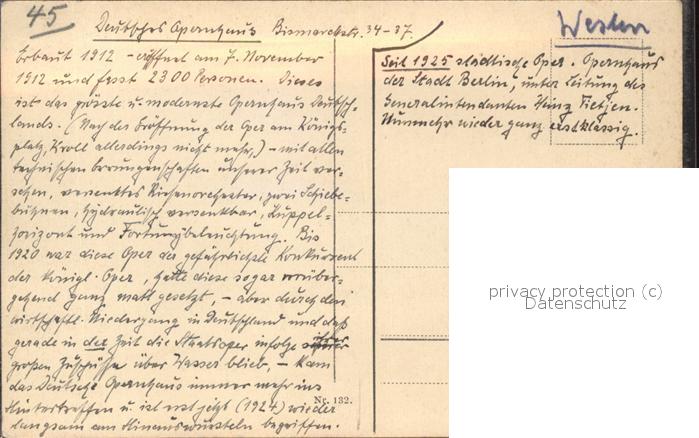 45
Deutsches Opernhaus Bismarckstr. 34-37.
Westen
Erbaut 1912 - eröffnet am 7. November
1912 und fasst 2300 Personen. Dieses
ist das grösste u. modernste Opernhaus Deutsch-
lands. (Nach der Eröffnung der Oper am Königs-
platz, Kroll allerdings nicht mehr,) - mit allen
technischen Errungenschaften unserer Zeit ver-
sehen, versenktes Riesenorchester, zwei Schiebe-
bühnen, hydraulisch versenkbar, Kuppel-
horizont und Fortunybeleuchtung. Bis
1920 war diese Oper der gefährlichste Konkurrent
der königl. Oper, hatte diese sogar vorüber-
gehend ganz matt gesetzt, - aber durch den
wirtschaftl. Niedergang in Deutschland und daß
gerade in der Zeit die Staatsoper infolge ihrer
großen Zuschüsse über Wasser blieb, - kam
das Deutsche Opernhaus immer mehr ins
Hintertreffen u. ist erst jetzt (1924) wieder
langsam am Hinauswursteln begriffen.
Seit 1925 städtische Oper. Opernhaus
der Stadt Berlin, unter Leitung des
Generalintendanten Heinz Tietjen.
Nunmehr wieder ganz erstklassig.
Nr. 132.
privacy protection (c)
Datenschutz